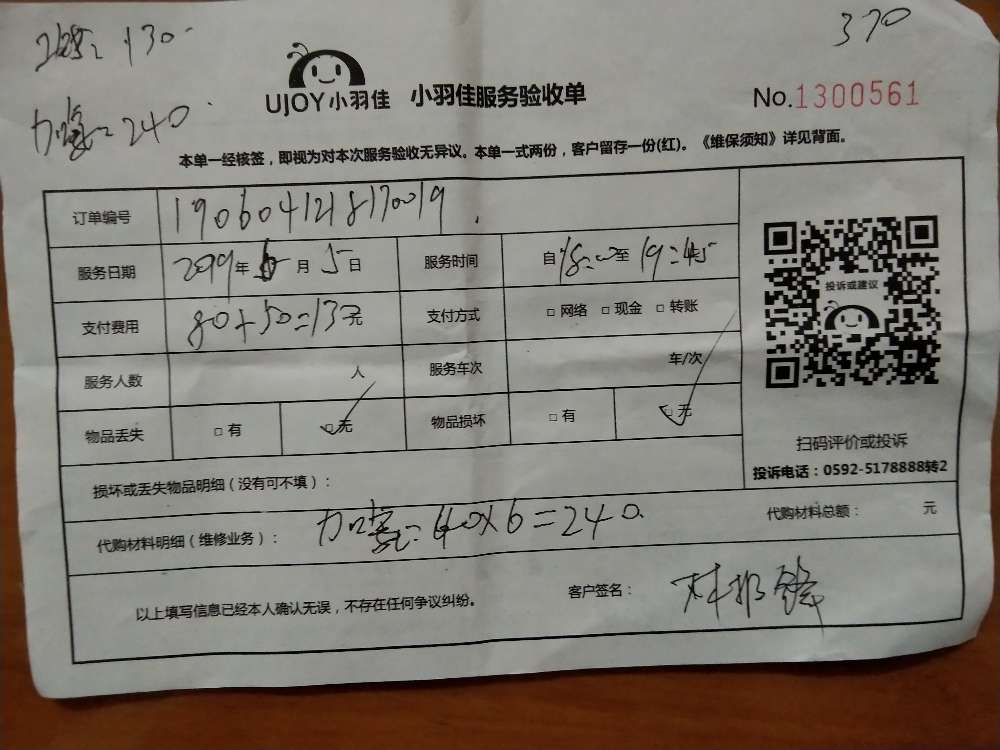 130
370
UJOY小羽佳 小羽佳服务验收单
No.1300561
240
本单一经核签，即视为对本次服务验收无异议。本单一式两份，客户留存一份(红)。《维保须知》详见背面。
订单编号 1906041218170019
服务日期 2019年6月5日 服务时间 自18:00至19:45
支付费用 80+50=13元 支付方式 □网络 □现金 □转账
服务人数 人 服务车次 车/次
物品丢失 □有 □无 物品损坏 □有 □无
投诉或建议
扫码评价或投诉
投诉电话：0592-5178888转2
损坏或丢失物品明细（没有可不填）：
代购材料明细（维修业务）： 40×6=240 代购材料总额： 元
以上填写信息已经本人确认无误，不存在任何争议纠纷。 客户签名：